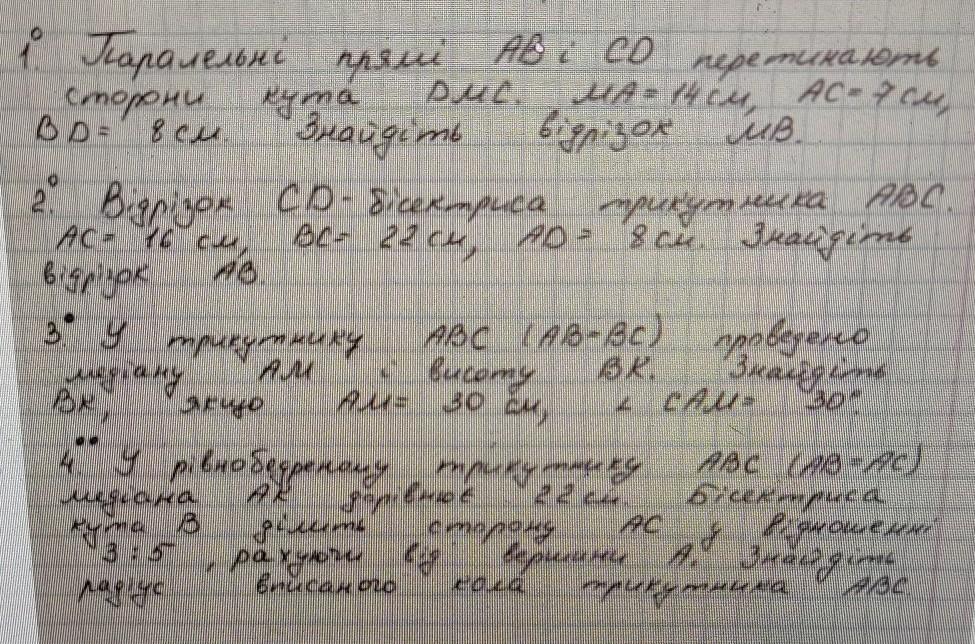 1° Паралельні прямі AB і CD перетинають
сторони кута DMC. MA = 14 см, AC = 7 см,
BD = 8 см. Знайдіть відрізок MB.
2° Відрізок CD - бісектриса трикутника ABC.
AC = 16 см, BC = 22 см, AD = 8 см. Знайдіть
відрізок AB.
3• У трикутнику ABC (AB=BC) проведено
медіану AM і висоту BK. Знайдіть
BK, якщо AM = 30 см, ∠ CAM = 30°.
4•• У рівнобедреному трикутнику ABC (AB=AC)
медіана AK дорівнює 22 см. Бісектриса
кута B ділить сторону AC у відношенні
3:5, рахуючи від вершини A. Знайдіть
радіус вписаного кола трикутника ABC.